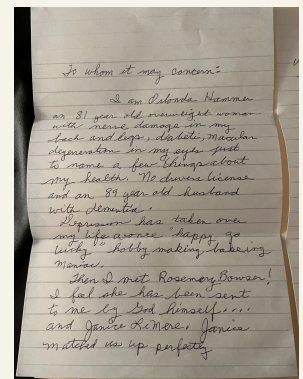 To whom it may concern:
I am Palonda Hammer
an 81 year old overweight woman
with nerve damage in my
back and legs, diabetic, macular
degeneration in my eyes just
to name a few things about
my health. No drivers license
and an 89 year old husband
with dementia.
Depression has taken over
my life once "happy go
lucky" hobby making,
Then I met Rosemary Bowser!
I feel she has been sent
to me by God himself....
and Janice LeMere. Janice
matched us up perfectly